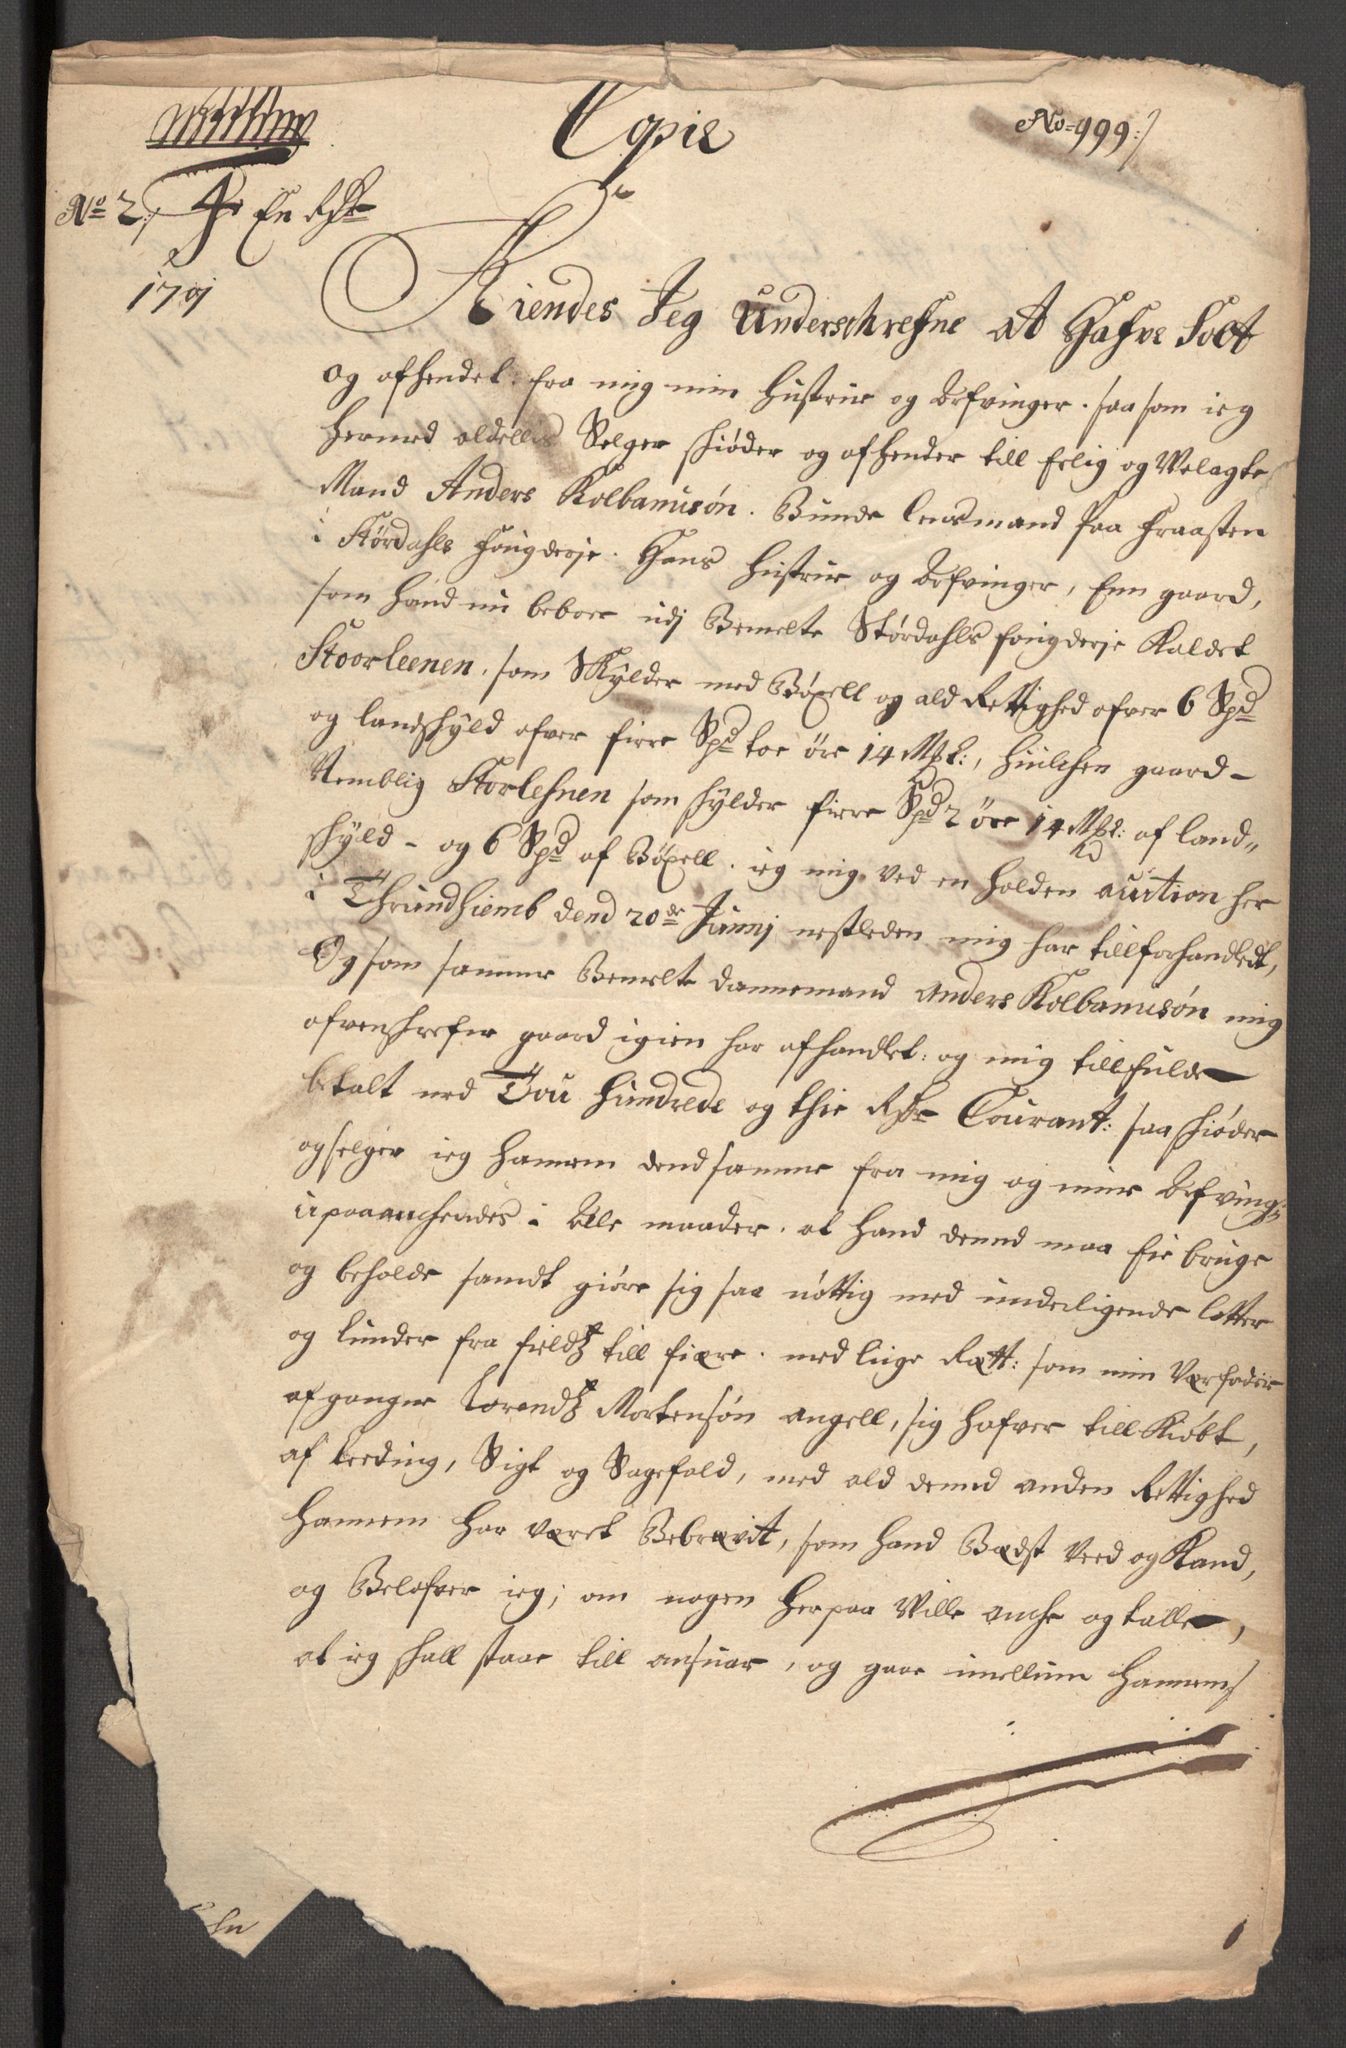 Copie
No=999:/
No 2:/ 4 En Rdr
1701
Kiendes Jeg Underschrefne at Hafve Solt
og afhendet fra mig min Hustrue og Arfvinger, saa som ieg
hermed aldelles Selger skiøder og afhender till Erlig og Velagte
Mand Anders Kolbanusøn. Bunde lensmand paa Fraasten
i Størdahls fougderje. Hans Hustrue og Arfvinger, Enn gaard,
som hand nu beboer udj Bemelte Størdahls fougderje Kaldet
Stoorleenen, som Skylder med Bøxell og ald Rettighed ofver 6 Spd
og landskyld ofver fiere Spd toe øre 14 Mkl:, huilchen gaard
Nemblig Storlehnen som skylder fiere Spd 2 øre 14 Mkl: af land„
skyld - og 6 Spd af Bøxell. ieg mig ved en holden auction her
i Thrundhiemb dend 20de Junnj nestleden mig har tillforhandledt,
Og som samme Bemelte Dannemand Anders Kolbanusøn mig
ofvenskrefne gaard igien har afhandlet: og mig tillfulde
betalt med Tou Hundrede og thie Rdr Courant: saa skiøder
og selger ieg hannem dend samme fra mig og mine Arfving:
upaaanchendes i Alle maader. at hand dennd maa Eie bruge
og beholde samdt giøre sig saa nøttig med underligende lotter
og lunder fra fieldz till fiære. med liige Rætt: som min Værfader
afgangne Lorendz Mortensøn angell, sig hafver till Kiøbt,
af leeding, Sigt og Sagefald, med ald dennd anden Rettighed
hannem har været Bebrævit, som hand Bædst Veed og Kand,
og Belofver ieg; om nogen herpaa Ville anche og talle,
at ieg skall staae till ansuar, og gaae imellum hannem